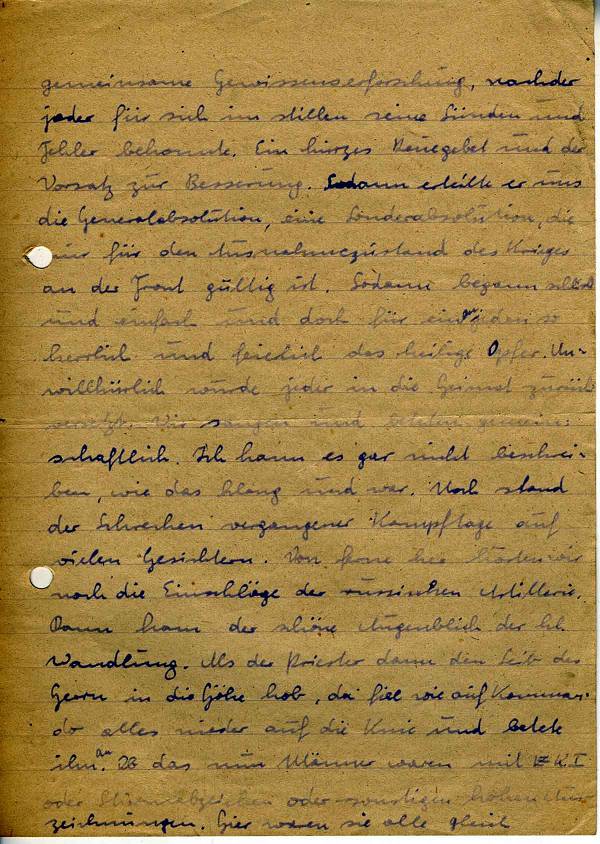 gemeinsame Gewissenserforschung, nachdem
jeder für sich im stillen seine Sünden und
Fehler bekannte. Ein kurzes Reuegebet und der
Vorsatz zur Besserung. Sodann erteilte er uns
die Generalabsolution, eine Sonderabsolution, die
nur für den Ausnahmezustand des Krieges
an der Front gültig ist. Sodann begann schlicht
und einfach und doch für einen jeden so
herrlich und feierlich das heilige Opfer. Un-
willkürlich wurde jeder in die Heimat zurück
versetzt. Wir sangen und beteten gemein-
schaftlich. Ich kann es gar nicht beschrei-
ben, wie das klang und war. Noch stand
der Schrecken vergangener Kampftage auf
vielen Gesichtern. Von ferne her hörten wir
noch die Einschläge der russischen Artillerie.
Dann kam der schöne Augenblick der hl.
Wandlung. Als der Priester dann den Leib des
Herrn in die Höhe hob, da fiel wie auf Komman-
do alles nieder auf die Knie und betete
ihn an. Ob das nun Männer waren mit E.K.I
oder Sturmabzeichen oder sonstigen hohen Aus-
zeichnungen. Hier waren sie alle gleich